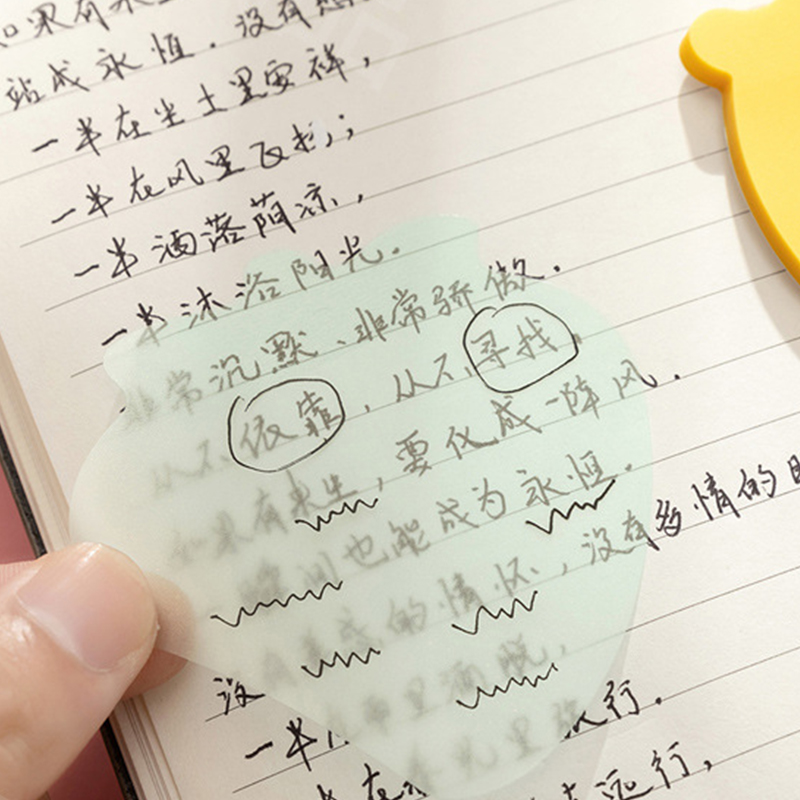 如果有来生
站成永恒．没有
一半在尘土里安祥，
一半在风里飞扬；
一半洒落荫凉，
一半沐浴阳光．
非常沉默、非常骄傲．
从不依靠，从不寻找．
如果有来生，要化成一阵风．
一瞬间也能成为永恒．
没有善感的情怀，没有多情的
一半在雨里洒脱，
一半在光里旅行．
远行，